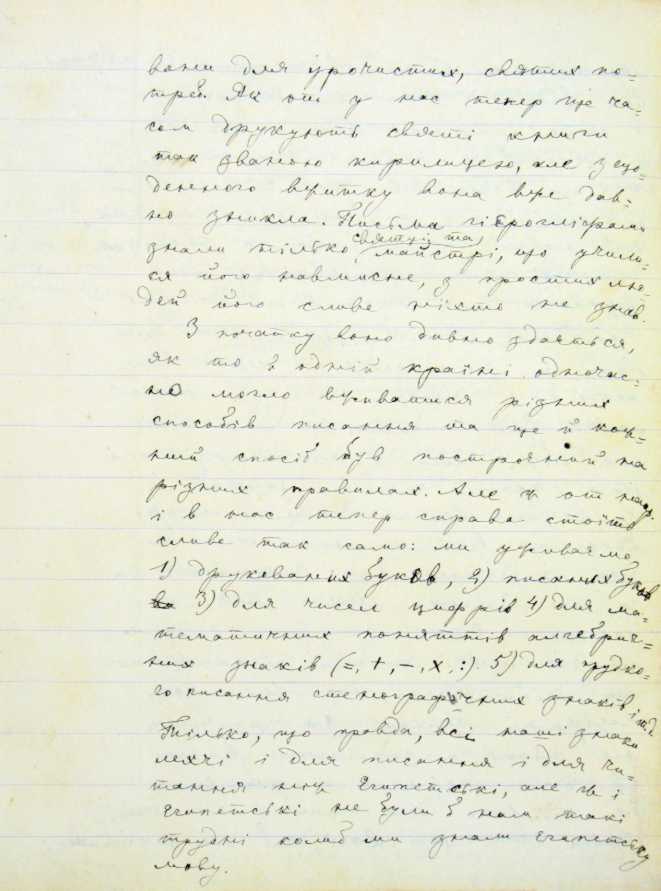 вони для урочистих, святих по-
треб. Як от у нас тепер ще ча-
сом друкують святі книги
так званою кирилицею, але з що-
денного вжитку вона вже дав-
но зникла. Письма гіерогліфами
знали тілько святці та майстрі, що учили-
ся його навмисне, з простих лю-
дей його сливе ніхто не знав.
З початку воно дивно здається,
як то в одній країні одночас-
но могло вживатися різних
способів писання та ще й кож-
ний спосіб був построєний на
різних правилах. Але ж от напр.
і в нас тепер справа стоїть
сливе так само: ми уживаємо
1) друкованих букв, 2) писаних буков
3) для чисел цифрів 4) для ма-
тематичних поняттів алгебрич-
них знаків (=, +, –, ×, :). 5) для прудко-
го писання стенографичних знаків і т.д.
Тілько, що правда, всі наші знаки
легчі і для писання і для чи-
тання ніж Египетські, але ж і
Египетські не були б нам такі
трудні колиб ми знали египетську
мову.